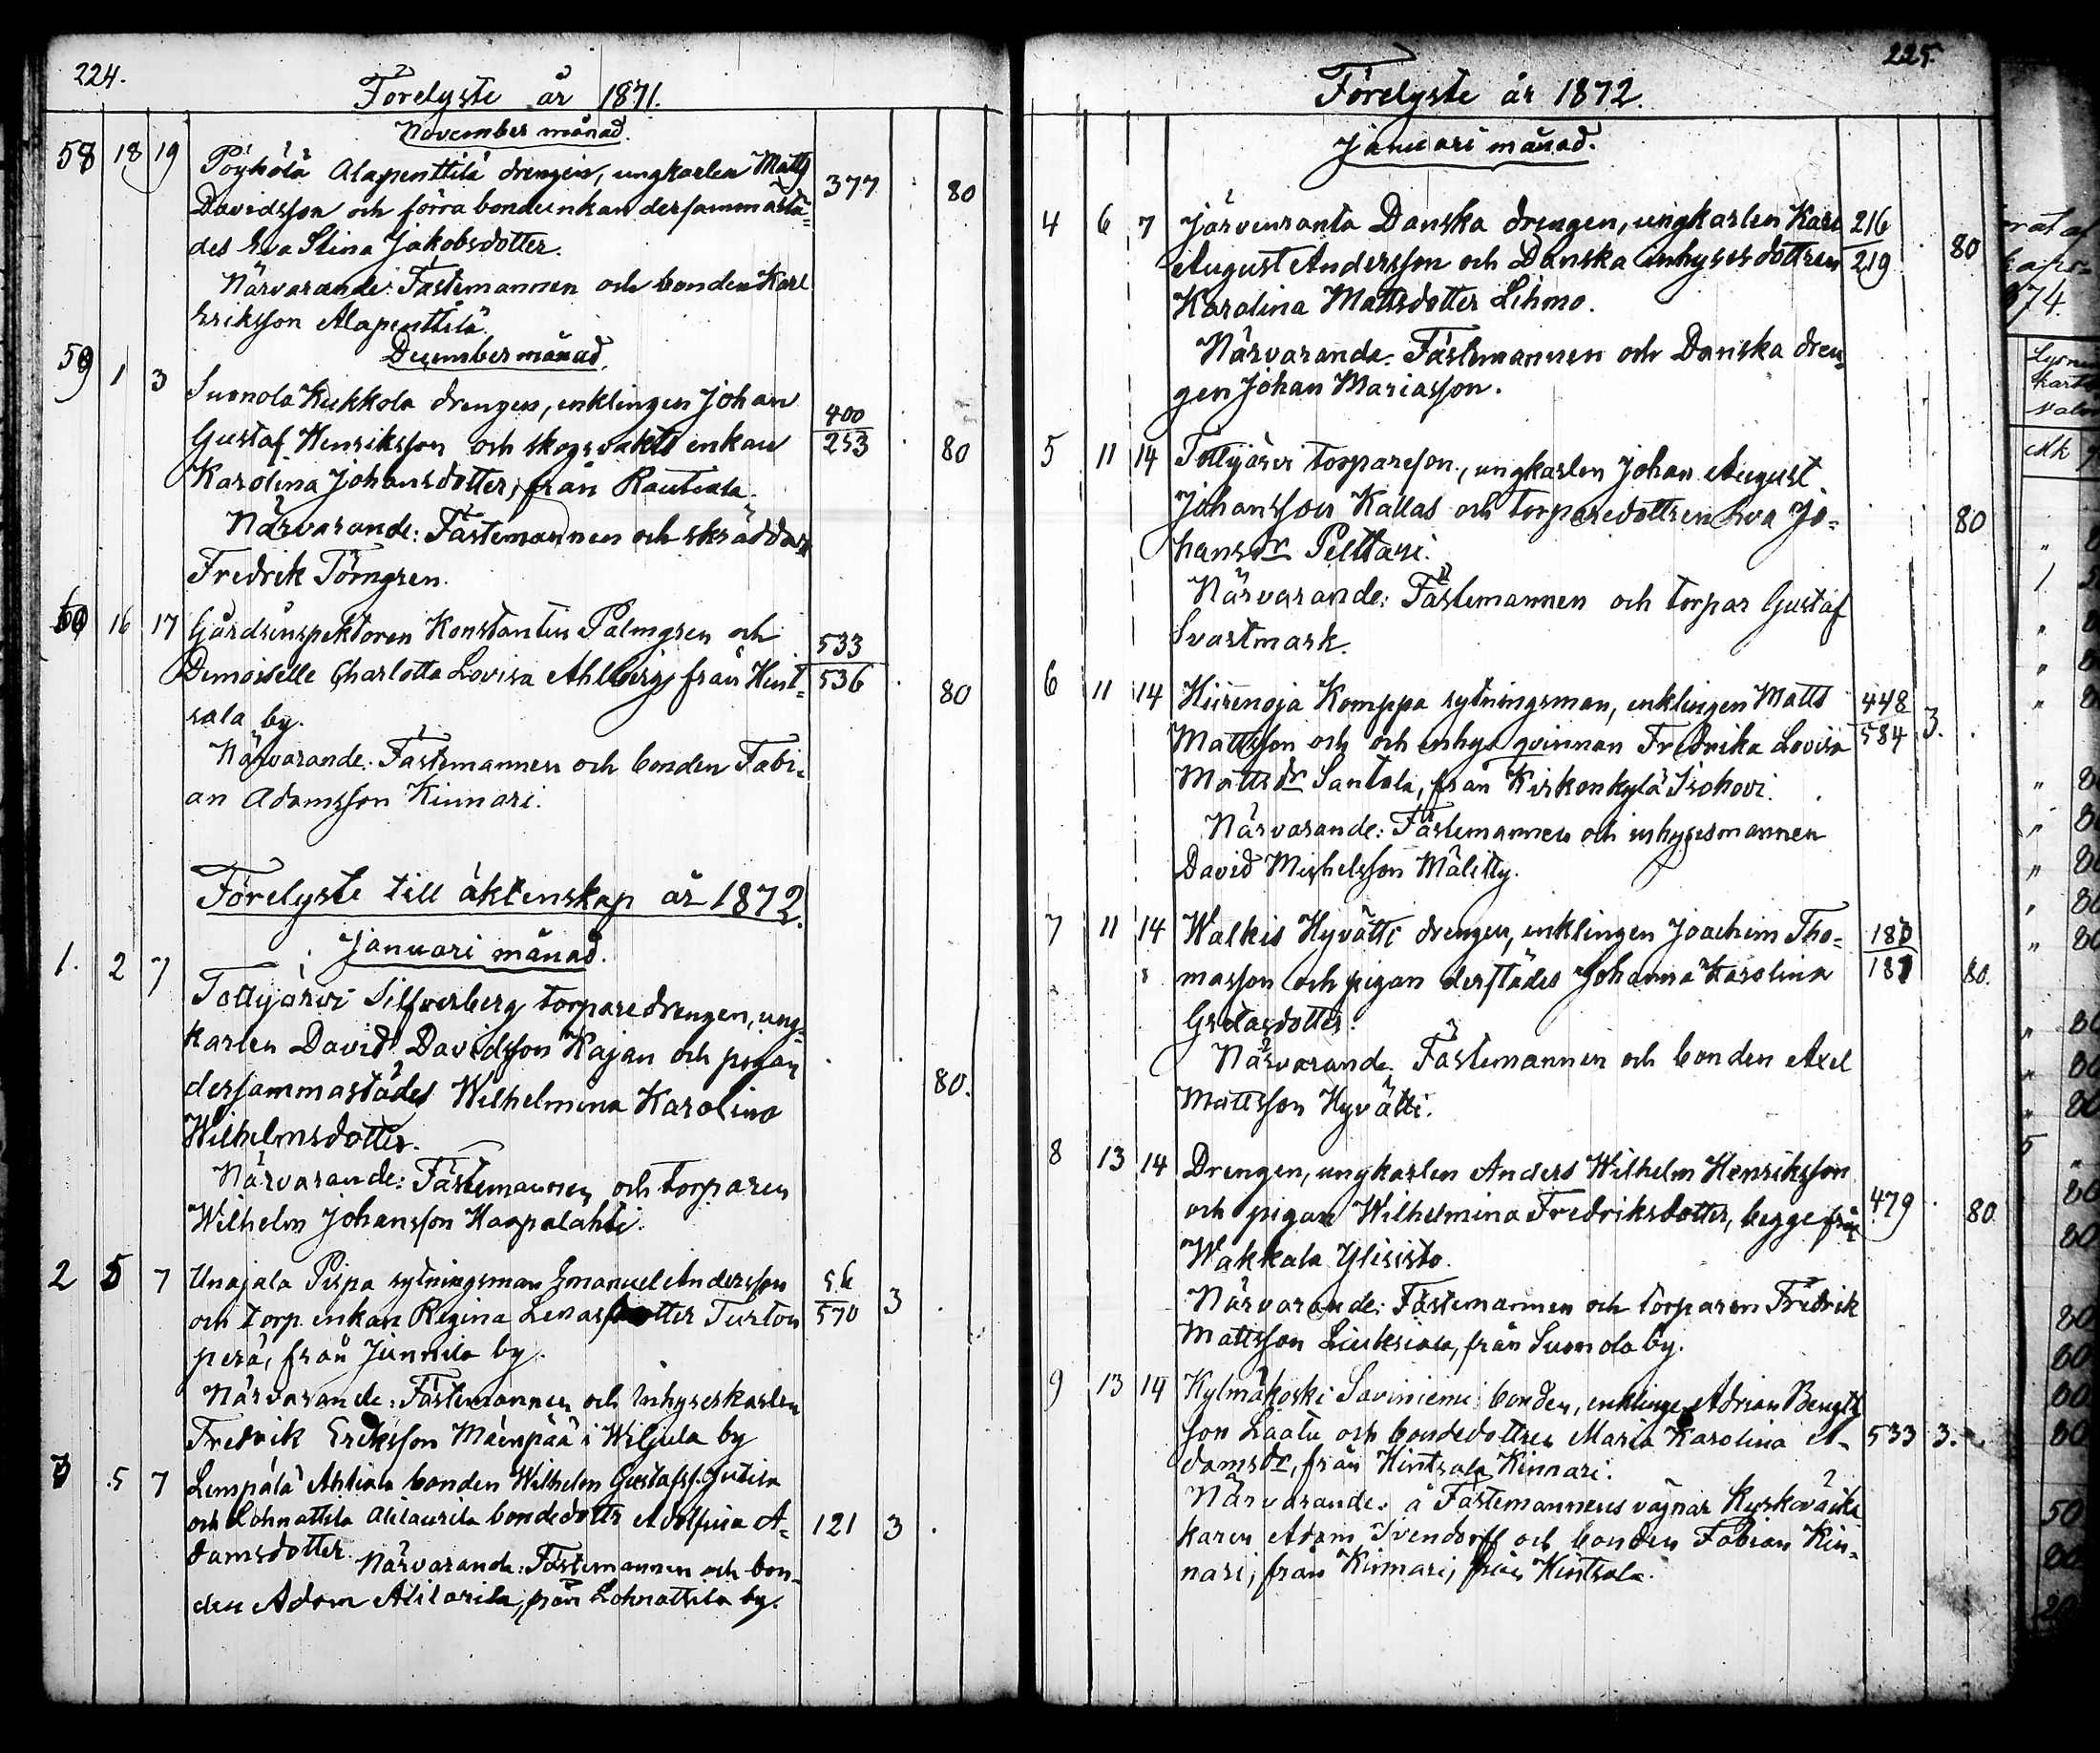 224.
Förelyste år 1871.
November månad.
58 18 19 Pöyhölä Alapenttilä drengen, ungkarlen Matts 377 80
Davidsson och förra bondenkan dersammastä-
des Eva Stina Jakobsdotter.
Närvarande: Fästemannen och bonden Karl
Eriksson Alapenttilä.
December månad.
59 1 3 Suonola Kukkola drengen, enklingen Johan 400
Gustaf Henriksson och skogsvakts enkan 253 80
Karolina Johansdotter, från Rautiala.
Närvarande: Fästemannen och skräddar
Fredrik Törngren.
60 16 17 Gårdsinspektoren Konstantin Palmgren och 533
Demoiselle Charlotta Lovisa Ahlberg, från Hint- 536 80
sala by.
Närvarande: Fästemannen och bonden Fabi-
an Adamsson Kinnari.
Förelyste till äktenskap år 1872.
Januari månad.
1. 2 7 Tottijärvi Silfverberg torparedrengen, ung-
karlen David Davidsson Kajan och pigan
dersammastädes Wilhelmina Karolina 80.
Wilhelmsdotter.
Närvarande: Fästemannen och torparen
Wilhelm Johansson Haapalahti.
2 5 7 Unajala Pispa sytningsman Emanuel Andersson 56
och torp. enkan Regina Lenasdotter Turton 570 3 .
perä, från Junnila by.
Närvarande: Fästemannen och inhyseskarlen
Fredrik Eriksson Mäenpää i Wiljula by
3 5 7 Lempälä Ahtiala bonden Wilhelm Gustafss. Jutila
och Lohnattila Alilaurila bondedottr Adolfina A- 121 3 .
damsdotter. Närvarande: Fästemannen och bon-
den Adam Alilarila, från Lohnattila by.
225.
Förelyste år 1872.
Januari månad.
4 6 7 Järvenranta Danska drengen, ungkarlen Karl 216
August Andersson och Danska inhysesdottren 219 80
Karolina Mattsdotter Lehmo.
Närvarande: Fästemannen och Danska dren-
gen Johan Mariasson.
5 11 14 Tottijärvi torpareson, ungkarlen Johan August
Johansson Kallas och torparedottren Eva Jo- 80
hansdr Pelttari.
Närvarande: Fästemannen och torpar Gustaf
Svartmark.
6 11 14 Hiirenoja Komppa sytningsman, enklingen Matts 448
Mattsson och och inhys qvinnan Fredrika Lovisa 584 3. .
Mattsdr Santala, från Kirkonkylä Isohovi.
Närvarande: Fästemannen och inhysesmannen
David Michelsson Mälitty.
7 11 14 Walkis Hyvätti drengen, enklingen Joachim Tho- 180
masson och pigan derstädes Johanna Karolina 181 80.
Gretasdotter.
Närvarande: Fästemannen och bonden Axel
Mattsson Hyvätti.
8 13 14 Drengen, ungkarlen Anders Wilhelm Henriksson
och pigan Wilhelmina Fredriksdotter, begge från 479 80
Wakkala Ylisisto.
Närvarande: Fästemannen och torparen Fredrik
Mattsson Liuksiala, från Suonola by.
9 13 14 Kylmäkoski Saviniemi bonden, enklinge Adrian Bengts
son Laalu och bondedottren Maria Karolina A- 533 3.
damsdr, från Hintsala Kinnari.
Närvarande: å Fästemannens vägnar Kyrkoväkt
karen Adam Ivendorff och bonden Fabian Kin-
nari, från Kinnari, från Hintsala.
874.
Mk